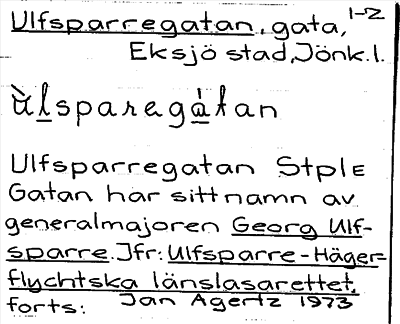 Ulfsparregatan, gata, 1-2
Eksjö stad, Jönk.l.
ùlsparegàtan
Ulfsparregatan StplE
Gatan har sitt namn av
generalmajoren Georg Ulf-
sparre. Jfr: Ulfsparre-Häger-
flychtska länslasarettet.
forts: Jan Agertz 1973